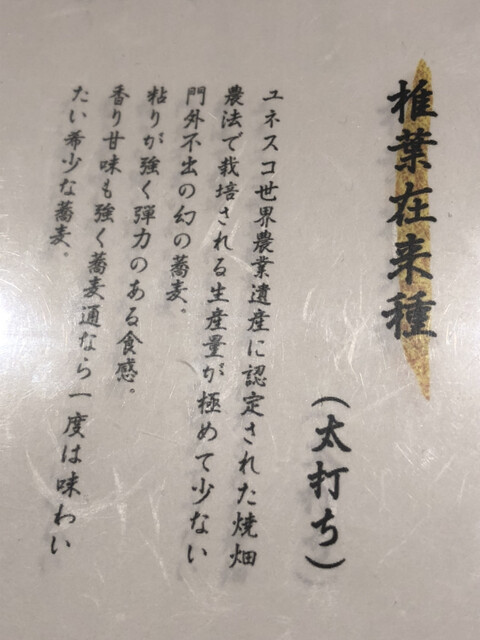 椎葉在来種
（太打ち）
ユネスコ世界農業遺産に認定された焼畑
農法で栽培される生産量が極めて少ない
門外不出の幻の蕎麦。
粘りが強く弾力のある食感。
香り甘味も強く蕎麦通なら一度は味わい
たい希少な蕎麦。